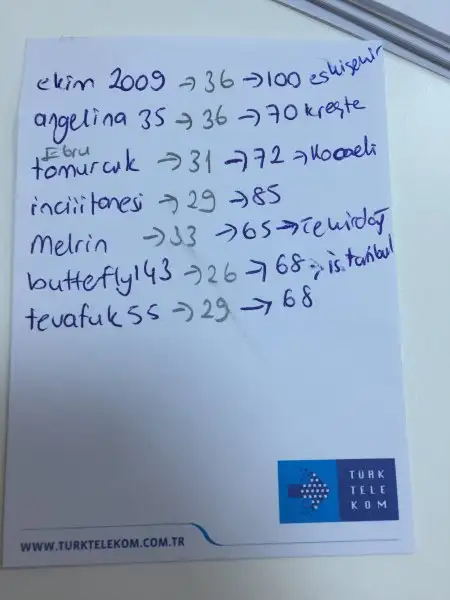 ekim 2009 → 36 → 100 eskişehir
angelina 35 → 36 → 70 kreşte
Ebru
tomurcuk → 31 → 72 → Kocaeli
inciiitanesi → 29 → 85
Melrin → 33 → 65 → Tekirdağ
butterfly143 → 26 → 68 → istanbul
tevafuk 55 → 29 → 68
TÜRK
TELE
KOM
WWW.TURKTELEKOM.COM.TR